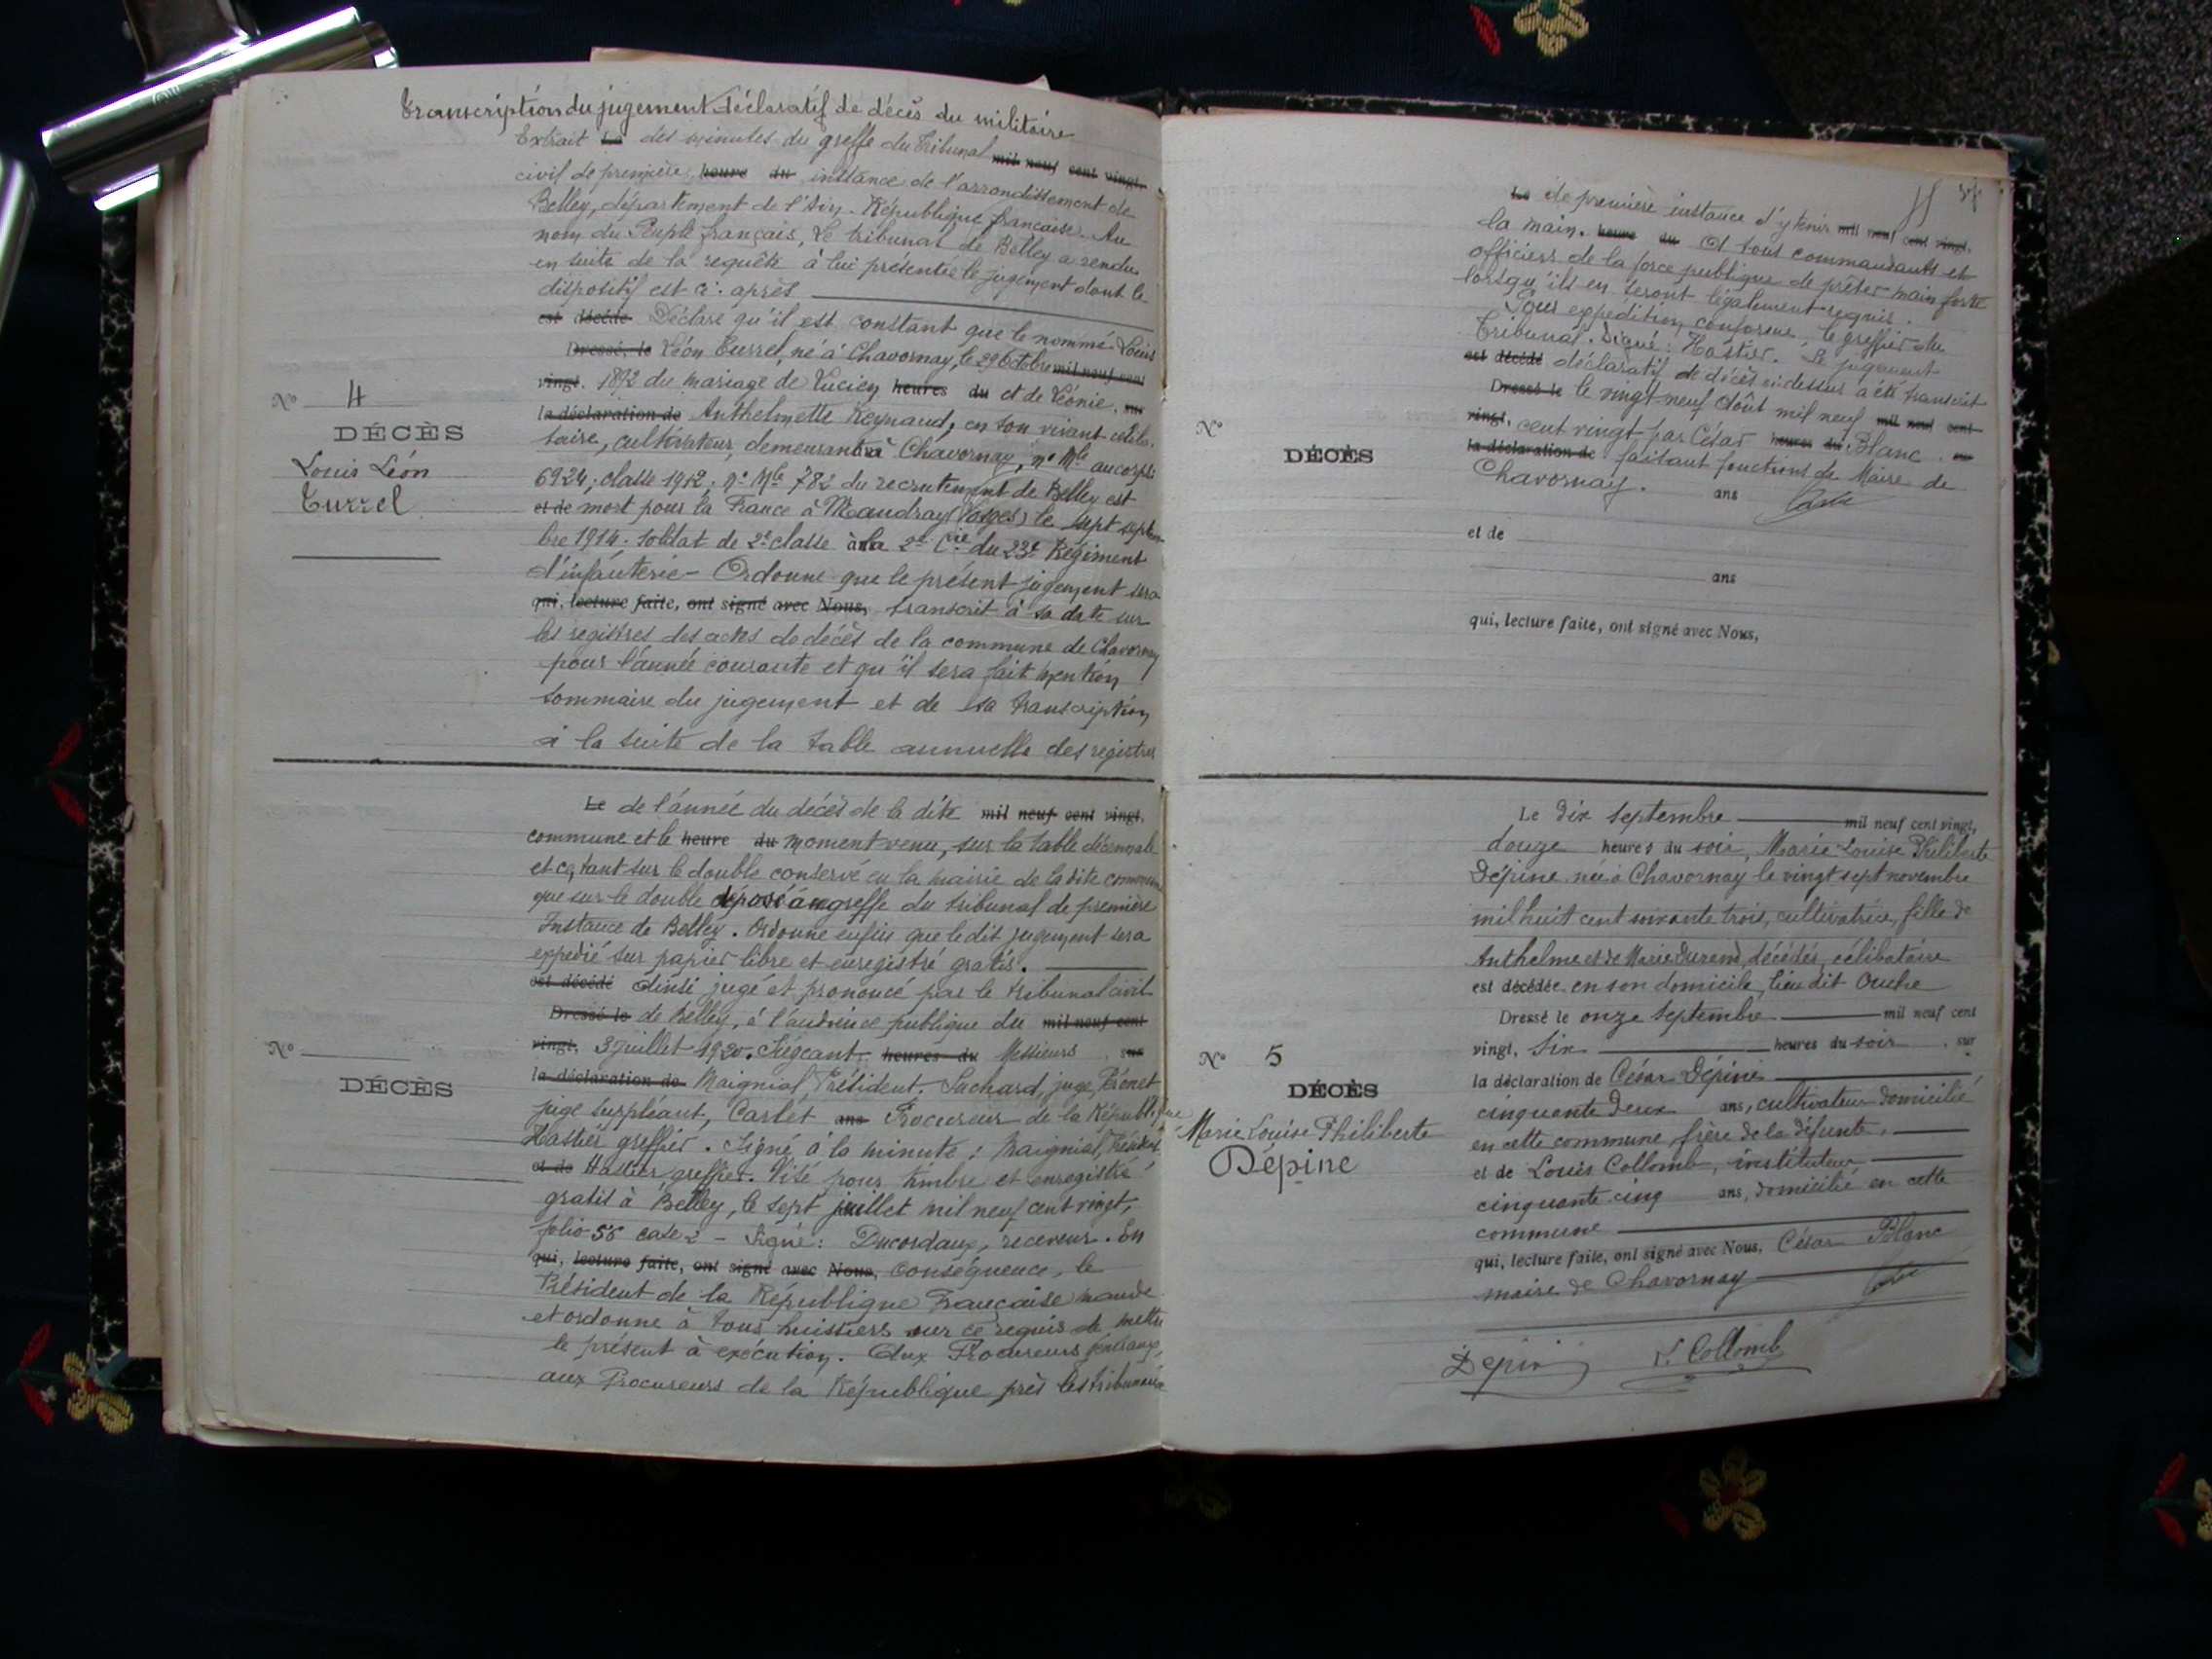 Transcription du jugement déclaratif de décès du militaire
Extrait Le des minutes du greffe du Tribunal mil neuf cent vingt.
civil de première heure du instance de l'arrondissement de
Belley, département de l'Ain. République française. Au
nom du Peuple français, Le tribunal de Belley a rendu
en suite de la requête à lui présentée le jugement dont le
dispositif est ci-après
est décédé Déclare qu'il est constant que le nommé Louis
Dressé, le Léon Turrel, né à Chavornay, le 29 Octobre mil neuf cent
vingt. 1892 du mariage de Lucien heures du et de Léonie, sur
la déclaration de Anthelmette Reynaud, en son vivant céliba-
taire, cultivateur, demeurant à Chavornay, n° Mle au corps
6924, classe 1912, n° Mle 782 du recrutement de Belley est
et de mort pour la France à Mandray (Vosges) le sept septem-
bre 1914. Soldat de 2e classe à la 2e Cie du 23e Régiment
d'infanterie - Ordonne que le présent jugement sera
qui, lecture faite, ont signé avec Nous, transcrit à sa date sur
les registres des actes de décès de la commune de Chavornay
pour l'année courante et qu'il sera fait mention
sommaire du jugement et de sa transcription
à la suite de la table annuelle des registres
N° 4
DÉCÈS
Louis Léon
Turrel
Le de l'année du décès de la dite mil neuf cent vingt.
commune et le heure du moment venu, sur la table décennale
et ce, tant sur le double conservé en la mairie de la dite commune
que sur le double déposé au greffe du tribunal de première
Instance de Belley. Ordonne enfin que le dit jugement sera
expedié sur papier libre et enregistré gratis.
est décédé Ainsi jugé et prononcé par le tribunal civil
Dressé le de Belley, à l'audience publique du mil neuf cent
vingt, 3 juillet 1920. Siégeant: heures du Messieurs, sur
la déclaration de Maignial, Président, Sachard, juge, Perenet
juge suppléant, Carlet ans Procureur de la République
Hastier greffier. Signé à la minute: Maignial, Président
et de Hastier, greffier. Visé pour timbre et enregistré
gratis à Belley, le sept juillet mil neuf cent vingt,
folio 56 case 2 - Signé: Ducordaux, receveur. En
qui, lecture faite, ont signé avec Nous, conséquence, le
Président de la République Française mande
et ordonne à tous huissiers sur ce requis de mettre
le présent à exécution. Aux Procureurs généraux,
aux Procureurs de la République près les tribunaux
N°
DÉCÈS
Le de première instance d'y tenir mil neuf cent vingt.
la main. heure du A tous commandants et
officiers de la force publique de prêter main forte
lorsqu'ils en seront légalement requis.
Pour expédition conforme, le greffier du
Tribunal. Signé: Hastier. Le jugement
est décédé déclaratif de décès ci-dessus a été transcrit
Dressé le le vingt neuf Août mil neuf mil neuf cent
vingt, cent vingt par César heures du Blanc. sur
la déclaration de faisant fonctions de Maire de
Chavornay. ans
et de
ans
qui, lecture faite, ont signé avec Nous,
N°
DÉCÈS
Le dix septembre mil neuf cent vingt,
douze heures du soir, Marie Louise Philiberte
Dépine née à Chavornay le vingt sept novembre
mil huit cent soixante trois, cultivatrice, fille de
Anthelme et de Marie Durand, décédés, célibataire
est décédée en son domicile, lieu dit Ouche
Dressé le onze septembre mil neuf cent
vingt, six heures du soir, sur
la déclaration de César Dépine
cinquante deux ans, cultivateur domicilié
en cette commune, frère de la défunte,
et de Louis Collomb, instituteur
cinquante cinq ans, domicilié en cette
commune
qui, lecture faite, ont signé avec Nous, César Blanc
maire de Chavornay
Dépine L. Collomb
N° 5
DÉCÈS
Marie Louise Philiberte
Dépine